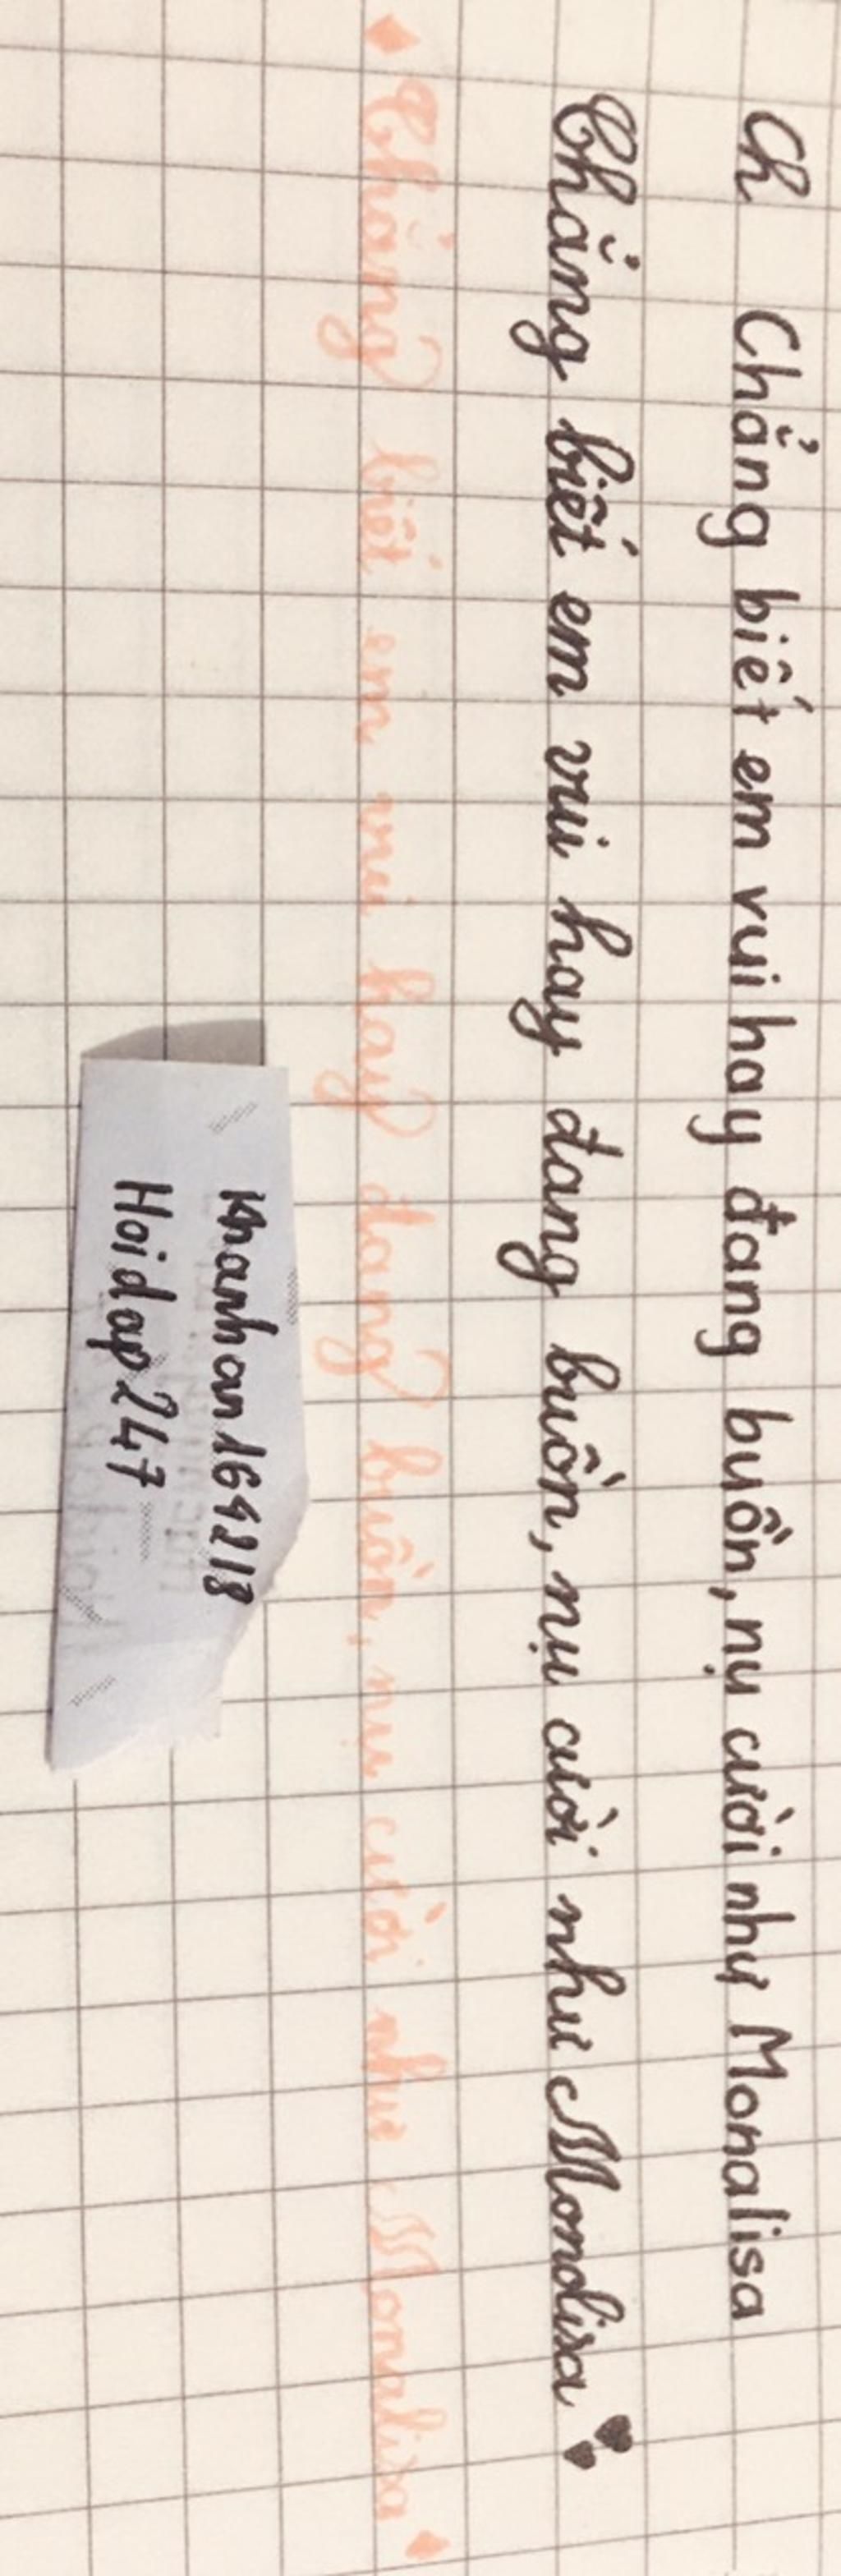 Ch Chẳng biết em vui hay đang buồn, nụ cười như Monalisa
Chẳng biết em vui hay đang buồn, nụ cười như Monalisa
Chẳng biết em vui hay đang buồn, nụ cười như Monalisa
Khanhan164218
Hoidap247